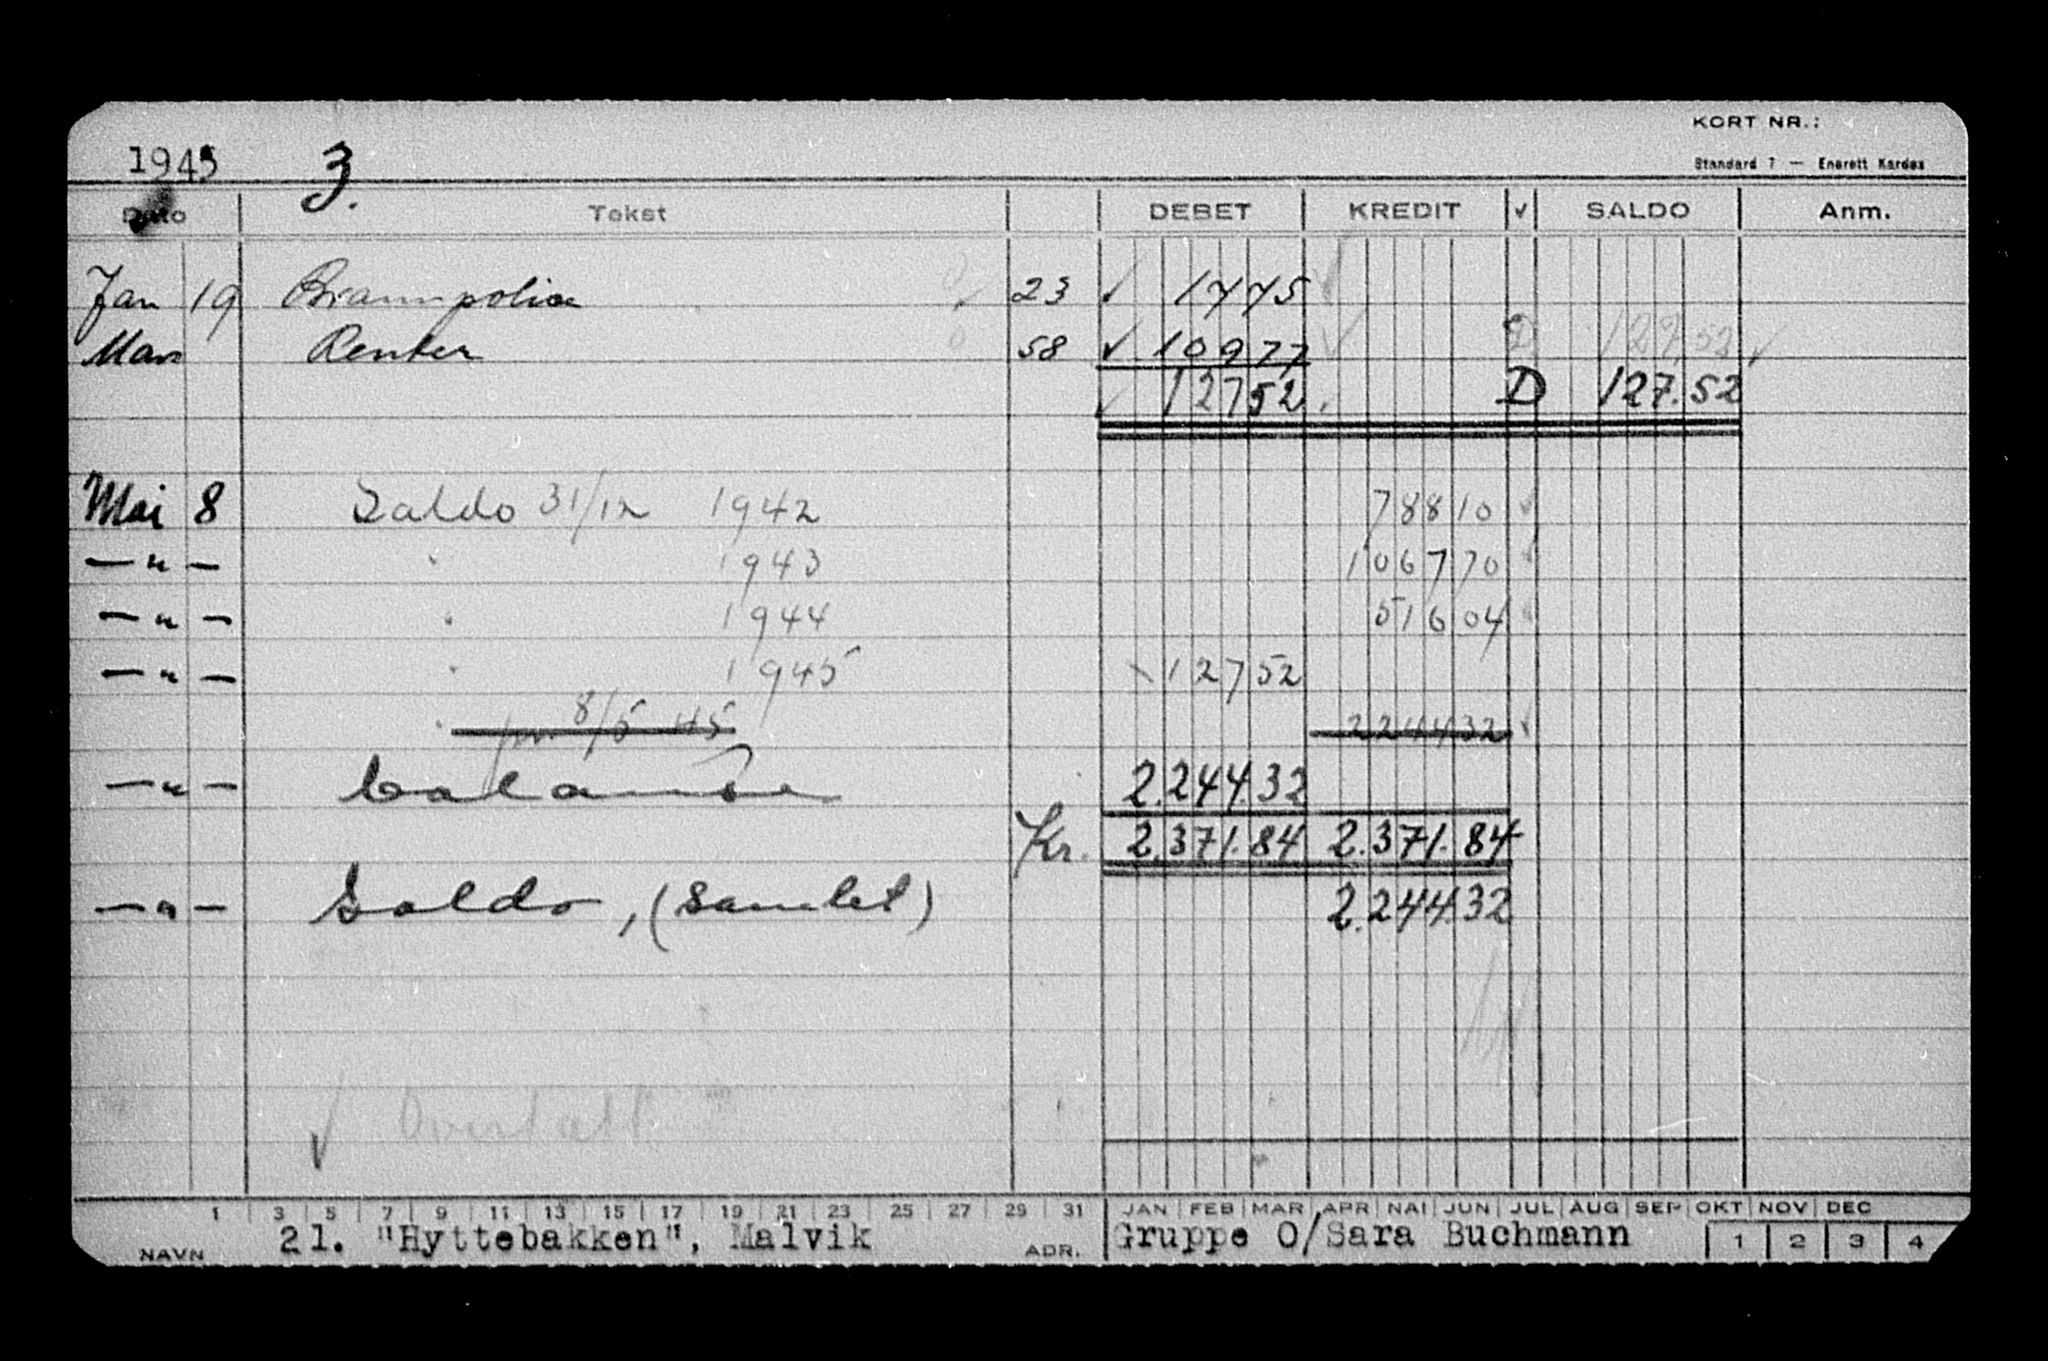 KORT NR.:
1945 3. Standard 7 — Enerett Kardex
Dato Tekst DEBET KREDIT √ SALDO Anm.
Jan 19 Brannpolise 23 ✓ 1775 ✓
Mars Renter 58 ✓ 10977 ✓ D 127,52 ✓
✓ 12752 D 127.52
Mai 8 Saldo 31/12 1942 78810 ✓
— " — " 1943 106770 ✓
— " — " 1944 51604 ✓
— " — " 1945 12752
" pr. 8/5 45 224432 ✓
— " — balanse 2.244.32
Kr. 2.371.84 2.371.84
— " — Saldo, (samlet) 2.244.32
✓ Overført
1 3 5 7 9 11 13 15 17 19 21 23 25 27 29 31 JAN FEB MAR APR MAI JUN JUL AUG SEP OKT NOV DEC
NAVN 21. "Hyttebakken", Malvik ADR. Gruppe O/Sara Buchmann 1 2 3 4